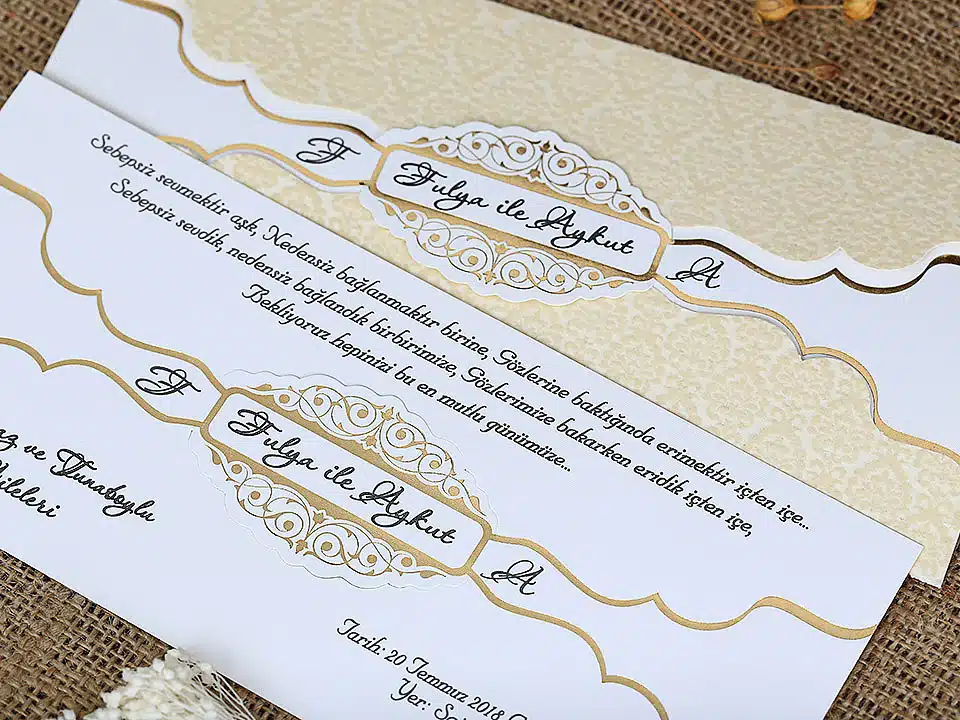 F
Fulya ile Aykut
A
Sebepsiz sevmektir aşk, Nedensiz bağlanmaktır birine, Gözlerine baktığında erimektir içten içe...
Sebepsiz sevdik, nedensiz bağlandık birbirimize, Gözlerimize bakarken eridik içten içe,
Bekliyoruz hepinizi bu en mutlu günümüze...
F
Fulya ile Aykut
A
ve Tunasoylu
Aileleri
Tarih: 20 Temmuz 2018
Yer: